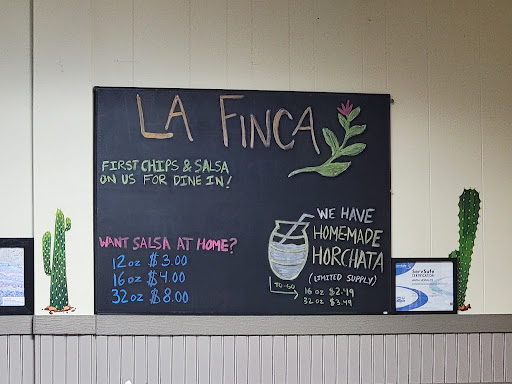 LA FINCA
FIRST CHIPS & SALSA
ON US FOR DINE IN!
WANT SALSA AT HOME?
12 oz $3.00
16 oz $4.00
32 oz $8.00
WE HAVE
HOME-MADE
HORCHATA
(LIMITED SUPPLY)
TO-GO
16 oz $2.49
32 oz $3.49
ServSafe
CERTIFICATION